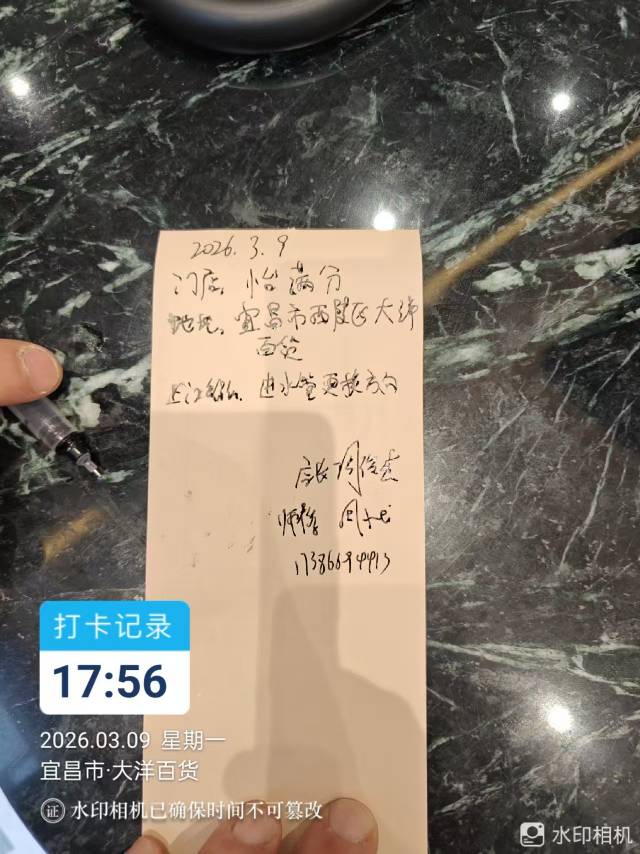 2026.3.9
门店: 怡满分
地址: 宜昌市西陵区大洋
百货
进水管更换方向
店长
师傅
17386694493
打卡记录
17:56
2026.03.09 星期一
宜昌市·大洋百货
证 水印相机已确保时间不可篡改
水印相机